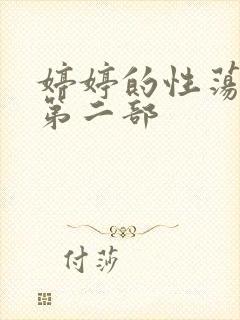 婷婷的性荡
第二部
付莎